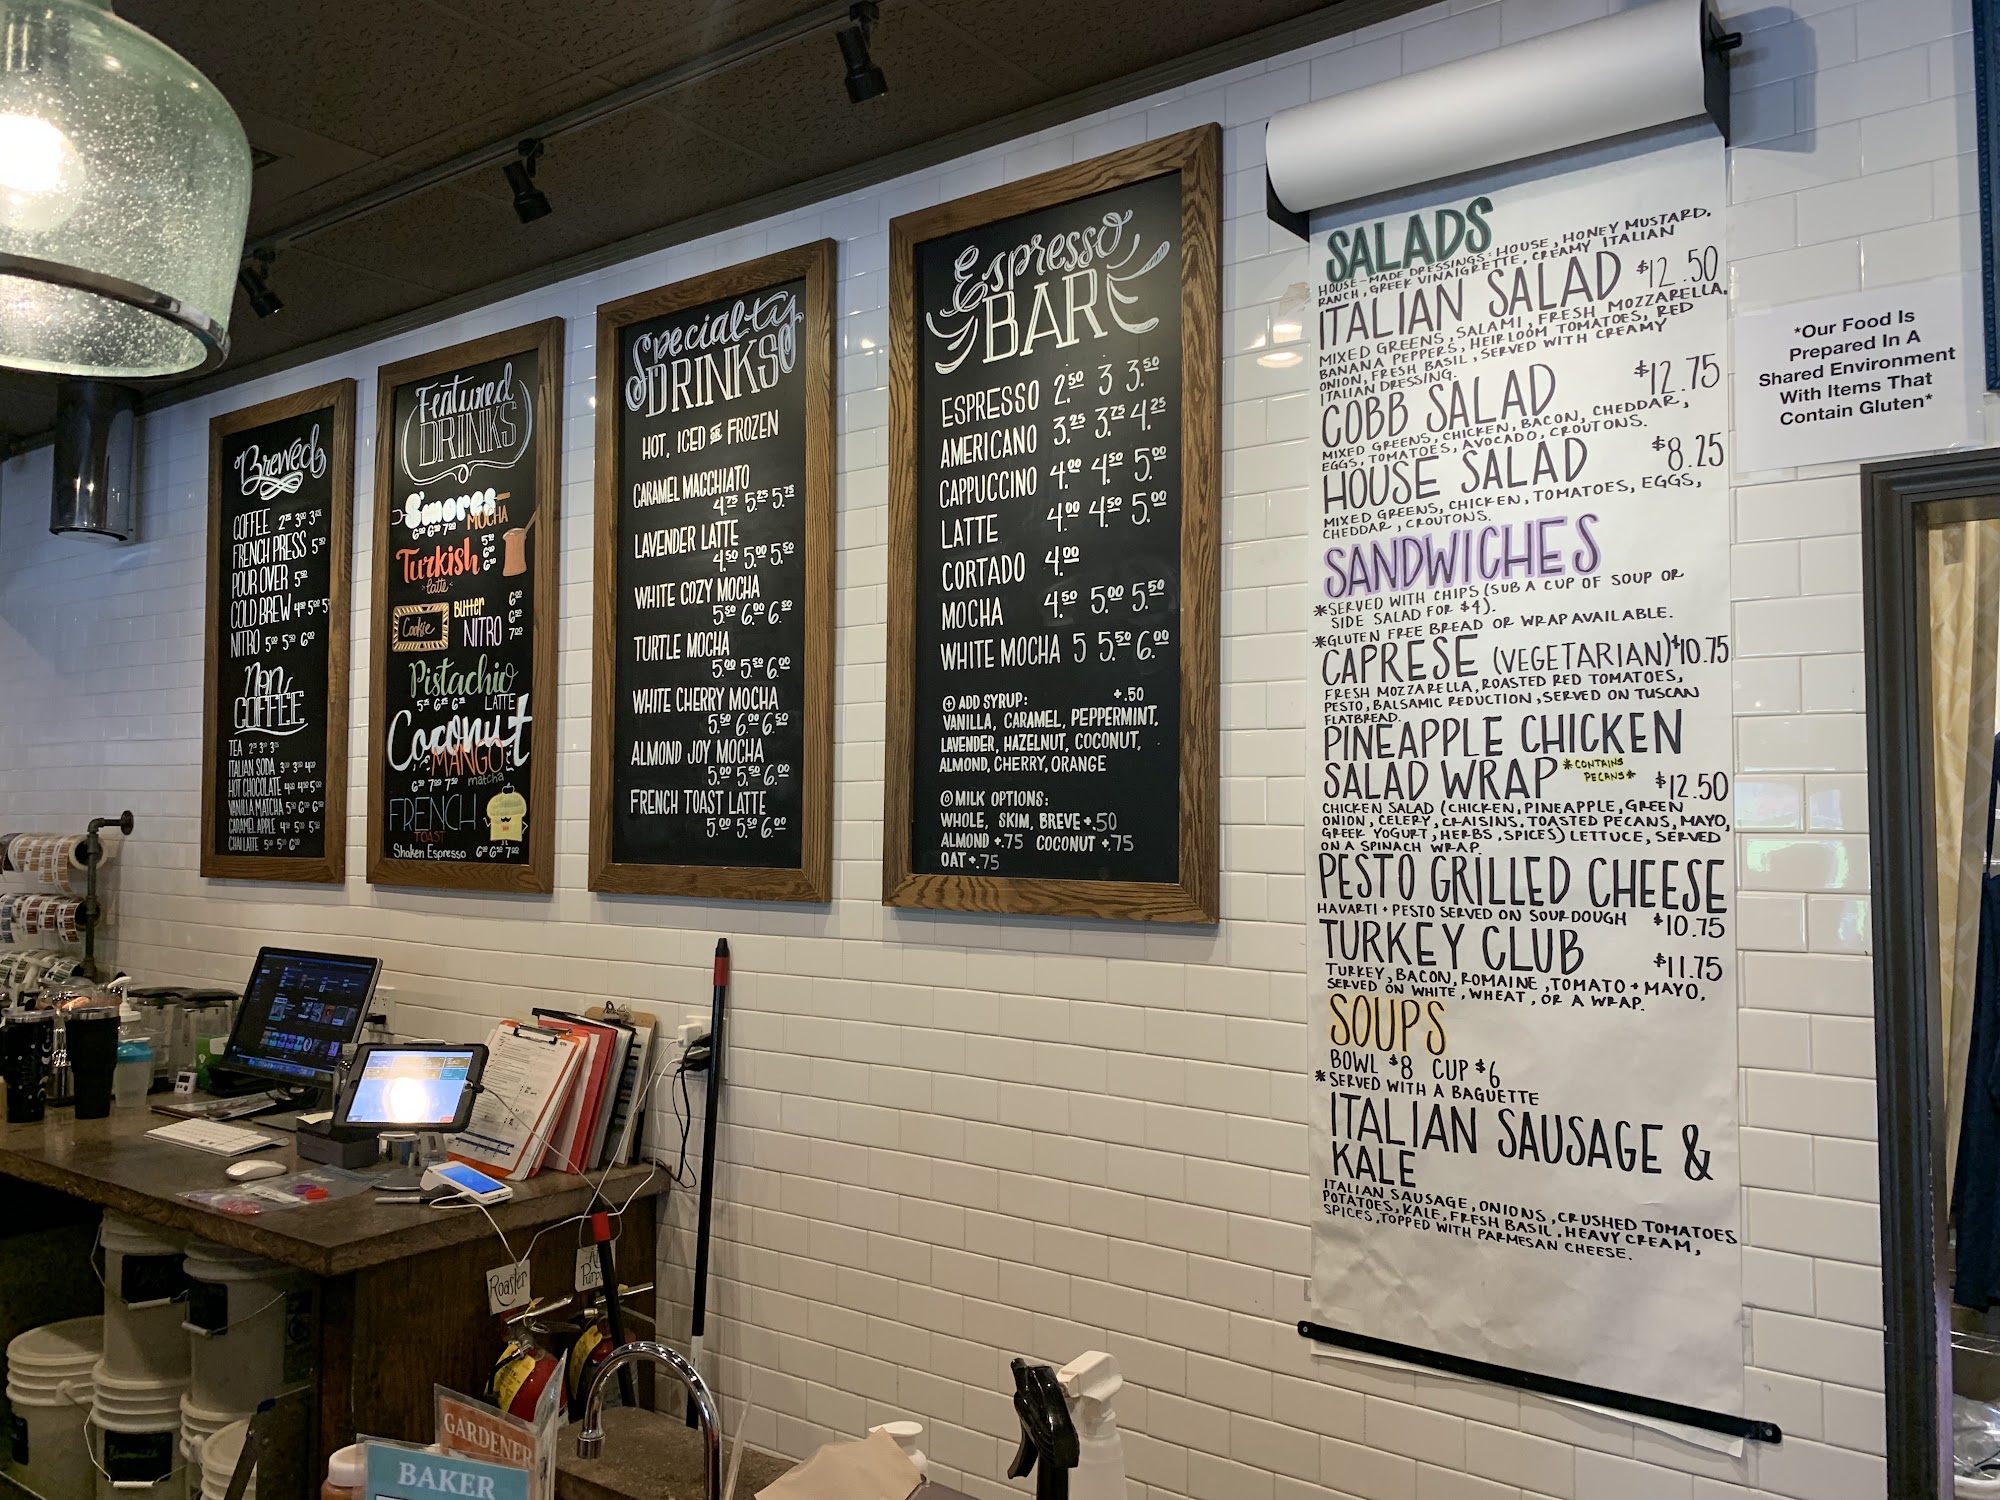 Brewed
COFFEE 2.75 3.00 3.25
FRENCH PRESS 5.50
POUR OVER 5.50
COLD BREW 4.50 5.00 5
NITRO 5.00 5.50 6.00
NON
COFFEE
TEA 2.75 3.00 3.25
ITALIAN SODA
HOT CHOCOLATE
VANILLA MATCHA
CARAMEL APPLE
CHAI LATTE
Featured
DRINKS
S'mores
MOCHA
6.00 6.50 7.00
Turkish
latte
Cookie
Butter
NITRO
6.00
6.50
7.00
Pistachio
LATTE
Coconut
MANGO
matcha
6.50 7.00 7.50
FRENCH
TOAST
Shaken Espresso 6.00 6.50 7.00
Specialty
DRINKS
HOT, ICED OR FROZEN
CARAMEL MACCHIATO
4.75 5.25 5.75
LAVENDER LATTE
4.50 5.00 5.50
WHITE COZY MOCHA
5.50 6.00 6.50
TURTLE MOCHA
5.00 5.50 6.00
WHITE CHERRY MOCHA
5.50 6.00 6.50
ALMOND JOY MOCHA
5.00 5.50 6.00
FRENCH TOAST LATTE
5.00 5.50 6.00
Espresso
BAR
ESPRESSO 2.50 3 3.50
AMERICANO 3.25 3.75 4.25
CAPPUCCINO 4.00 4.50 5.00
LATTE 4.00 4.50 5.00
CORTADO 4.00
MOCHA 4.50 5.00 5.50
WHITE MOCHA 5 5.50 6.00
ADD SYRUP: +.50
VANILLA, CARAMEL, PEPPERMINT,
LAVENDER, HAZELNUT, COCONUT,
ALMOND, CHERRY, ORANGE
MILK OPTIONS:
WHOLE, SKIM, BREVE +.50
ALMOND +.75 COCONUT +.75
OAT +.75
SALADS
HOUSE-MADE DRESSINGS: HOUSE, HONEY MUSTARD,
RANCH, GREEK VINAIGRETTE, CREAMY ITALIAN
ITALIAN SALAD $12.50
MIXED GREENS, SALAMI, FRESH MOZZARELLA,
BANANA PEPPERS, HEIRLOOM TOMATOES, RED
ONION, FRESH BASIL, SERVED WITH CREAMY
ITALIAN DRESSING.
COBB SALAD $12.75
MIXED GREENS, CHICKEN, BACON, CHEDDAR,
EGGS, TOMATOES, AVOCADO, CROUTONS.
HOUSE SALAD $8.25
MIXED GREENS, CHICKEN, TOMATOES, EGGS,
CHEDDAR, CROUTONS.
SANDWICHES
*SERVED WITH CHIPS (SUB A CUP OF SOUP OR
SIDE SALAD FOR $4).
*GLUTEN FREE BREAD OR WRAP AVAILABLE.
CAPRESE (VEGETARIAN) $10.75
FRESH MOZZARELLA, ROASTED RED TOMATOES,
PESTO, BALSAMIC REDUCTION, SERVED ON TUSCAN
FLATBREAD.
PINEAPPLE CHICKEN
SALAD WRAP *CONTAINS PECANS* $12.50
CHICKEN SALAD (CHICKEN, PINEAPPLE, GREEN
ONION, CELERY, CRAISINS, TOASTED PECANS, MAYO,
GREEK YOGURT, HERBS, SPICES) LETTUCE, SERVED
ON A SPINACH WRAP.
PESTO GRILLED CHEESE
HAVARTI + PESTO SERVED ON SOURDOUGH $10.75
TURKEY CLUB $11.75
TURKEY, BACON, ROMAINE, TOMATO + MAYO.
SERVED ON WHITE, WHEAT, OR A WRAP.
SOUPS
BOWL $8 CUP $6
*SERVED WITH A BAGUETTE
ITALIAN SAUSAGE &
KALE
ITALIAN SAUSAGE, ONIONS, CRUSHED TOMATOES
POTATOES, KALE, FRESH BASIL, HEAVY CREAM,
SPICES, TOPPED WITH PARMESAN CHEESE.
*Our Food Is
Prepared In A
Shared Environment
With Items That
Contain Gluten*
Roaster
GARDENER
BAKER